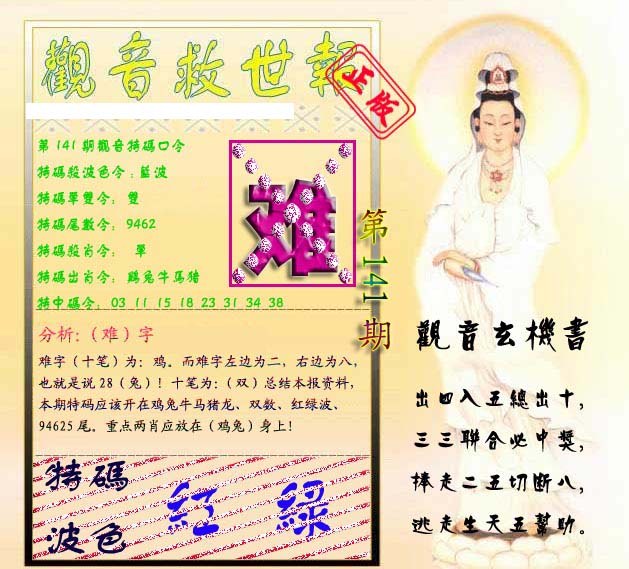 觀音救世報
正版
第141期觀音特碼口令
特碼殺波色令：藍波
特碼單雙令： 雙
特碼尾數令： 9462
特碼殺肖令： 單
特碼出肖令： 鷄兔牛馬猪
特中碼令： 03 11 15 18 23 31 34 38
难
第141期
分析:（难）字
难字（十笔）为：鸡。而难字左边为二，右边为八，
也就是说28（兔）！十笔为：（双）总结本报资料，
本期特码应该开在鸡兔牛马猪龙、双数、红绿波、
94625尾。重点两肖应放在（鸡兔）身上！
特碼
波色
紅 綠
觀音玄機書
出四入五總出十，
三三聯合必中獎，
捧走二五切断八，
逃走生天五幫助。